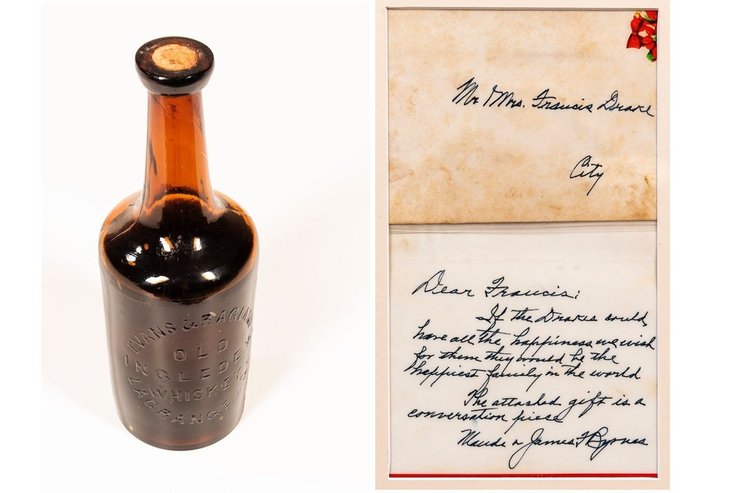 EVANS & RAGLAND
OLD
INGLEDEW
WHISKEY
LAGRANGE, GA.
Mr & Mrs. Francis Drake
City
Dear Francis:
If the Drakes could
have all the happiness we wish
for them they would be the
happiest family in the world
The attached gift is a
conversation piece
Maude & James F Byrnes